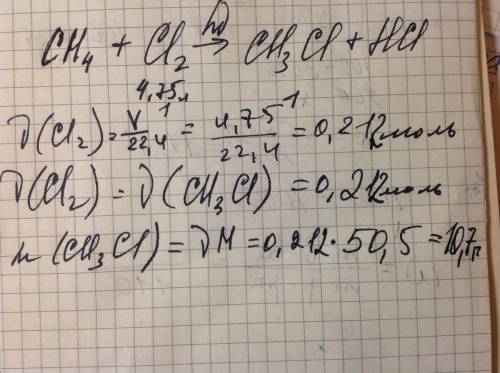 CH₄ + Cl₂ →hν CH₃Cl + HCl
4,75л
ν(Cl₂) = V/22,4 = 4,75/22,4 = 0,212 моль
ν(Cl₂) = ν(CH₃Cl) = 0,212 моль
m(CH₃Cl) = νM = 0,212 · 50,5 = 10,7г